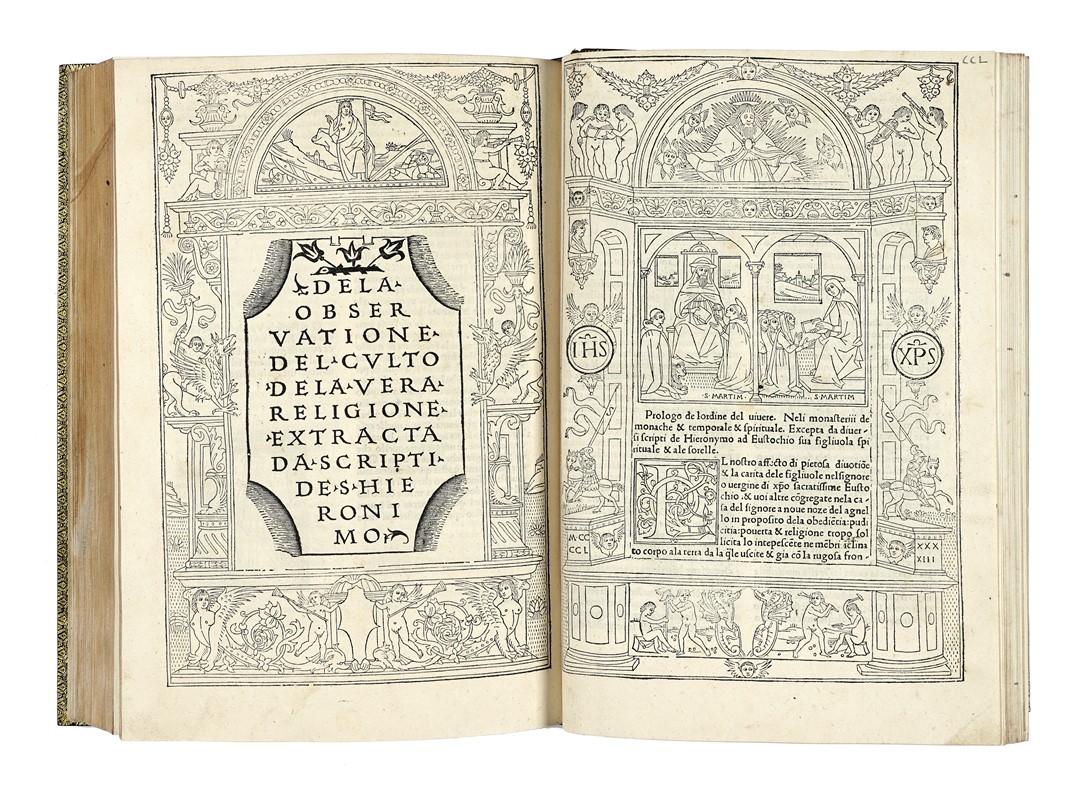 DELA
OBSER
VATIONE
DEL CVLTO
DELA VERA
RELIGIONE
EXTRACTA
DA SCRIPTI
DE S HIE
RONI
MO
CCL
IHS
XPS
·S·MARTIM·
S·MARTIM
Prologo de lordine del uiuere. Neli monasterii de
monache & temporale & spirituale. Excepta da diuer-
si scripti de Hieronymo ad Eustochio sua figliuola spi
rituale & ale sorelle.
L nostro affecto di pietosa diuotiõe
& la carita dele figliuole nelsignore
o uergine di xp̃o sacratissime Eusto
chio .& uoi altre cõgregate nela ca-
sa del signore a noue noze del agnel
lo in proposito dela obediẽtia: pudi
citia: pouerta & religione tropo sol
licita lo intepescẽte ne mẽbri icl̃ina
to corpo ala terra da la q̃le uscite & gia cõ la rugosa fron-
M·CC
CCL
XXX
XIII